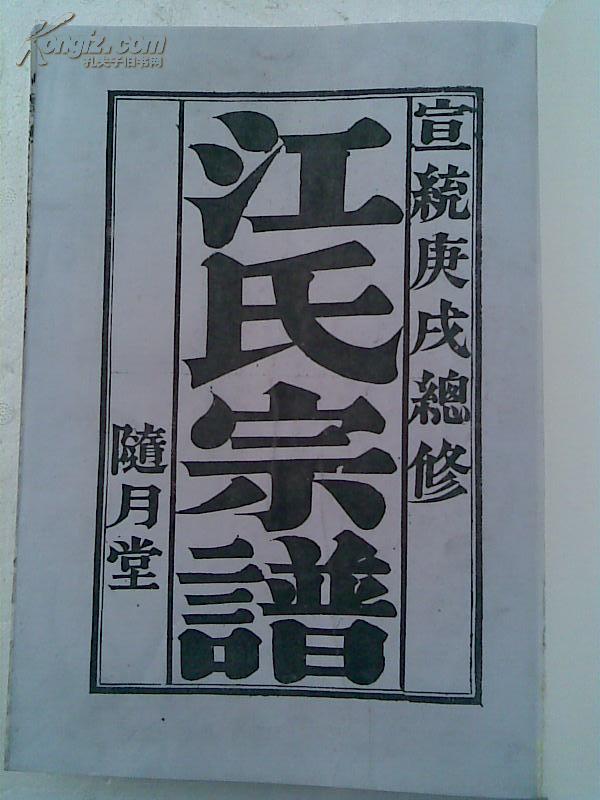 宣統庚戌總修
江氏宗譜
隨月堂
Kongfz.com
孔夫子旧书网